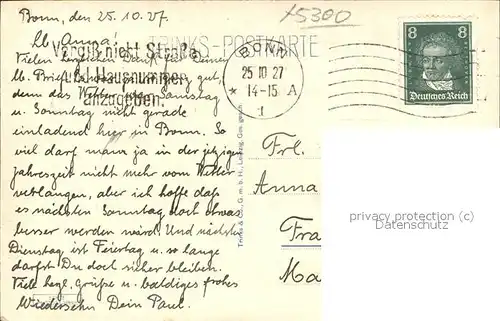 Bonn, den 25. 10. 27.
15300
TRINKS-POSTKARTE
Lb. Anna!
Vergiß nicht Straße
und Hausnummer
anzugeben.
BONN
25.10 27
* 14-15 A
1
8 8
Deutsches Reich
Vielen herzlichen Dank für Deinen
lb. Brief. gut,
denn das Wetter war Samstag
u. Sonntag nicht gerade
einladend hier in Bonn. So
viel darf man ja in der jetzigen
Jahreszeit nicht mehr vom Wetter
verlangen, aber ich hoffe daß
es nächsten Sonntag doch etwas
besser werden wird. Und nächsten
Dienstag ist Feiertag u. so lange
darfst Du doch sicher bleiben.
Viele hrzl. Grüße u. baldiges frohes
Wiedersehn Dein Paul.
Trinks & Co. G. m. b. H., Leipzig. Ges. gesch.
Frl.
Anna
Fra
Ma
privacy protection (c)
Datenschutz